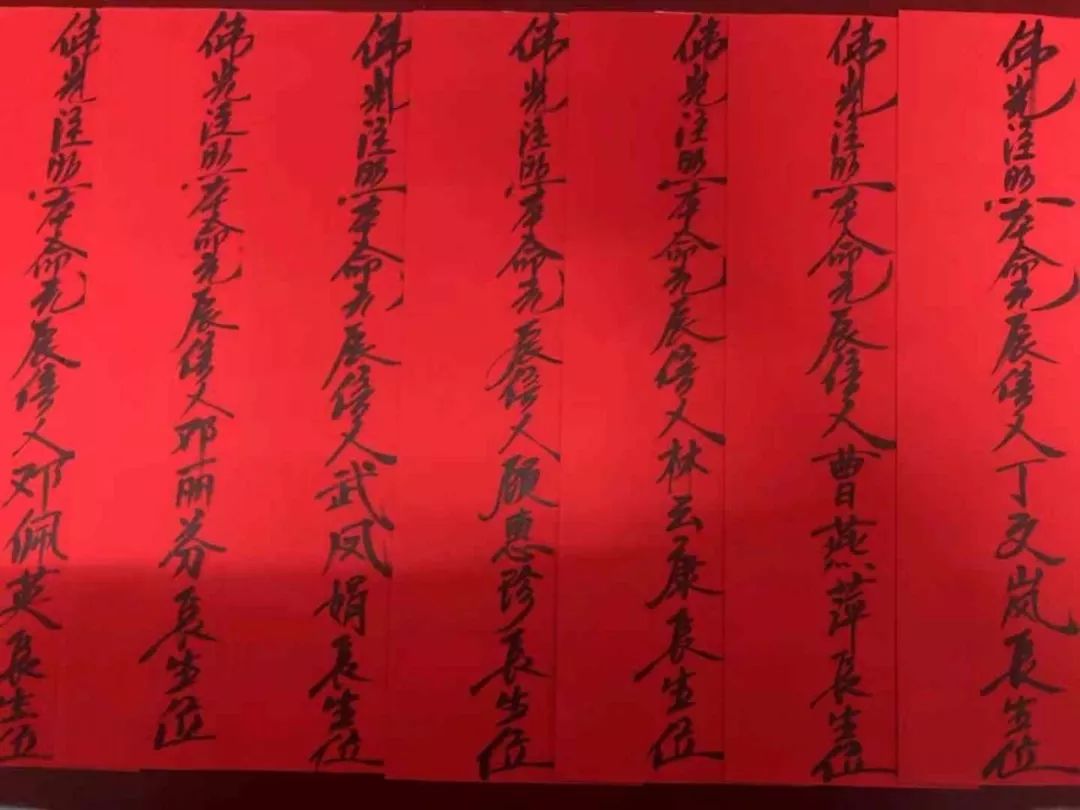 佛光注照本命元辰信人丁文岚长生位
佛光注照本命元辰信人曹燕萍长生位
佛光注照本命元辰信人林云康长生位
佛光注照本命元辰信人顾惠珍长生位
佛光注照本命元辰信人武凤娟长生位
佛光注照本命元辰信人邓丽芬长生位
佛光注照本命元辰信人邓佩英长生位